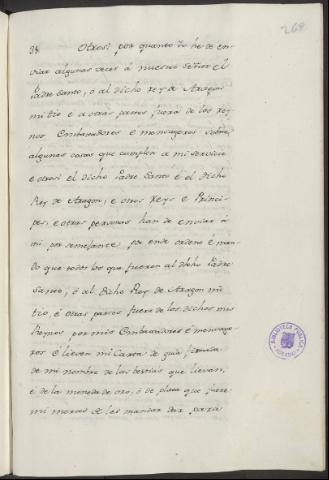 269
38 Otrosi por quanto Yo he de en-
viar algunas veces á nuestro Señor el
Padre Santo, ó al dicho rey de Aragon
mi tio é a otras partes fuera de los rey-
nos Embaxadores é mensageros sobre
algunas cosas que cumplen a mi servicio
é otrosi el dicho Padre Santo é el dicho
Rey de Aragon, e otros Reys e Princi-
pes, e otras personas han de enviar á
mi por semejante por ende ordeno é man-
do que todos los que fueren al dicho Padre
Santo, ó al dicho Rey de Aragon mi
tio, é otras partes fuera de los dichos mis
Reynos por mis Embaxadores é mensage-
ros é lieven mi Carta de guia firmada
de mi nombre de las bestias que llevan,
é de la moneda de oro, ó de plata que fuere
mi merced de les mandar dar para
BIBLIOTECA PUBLICA